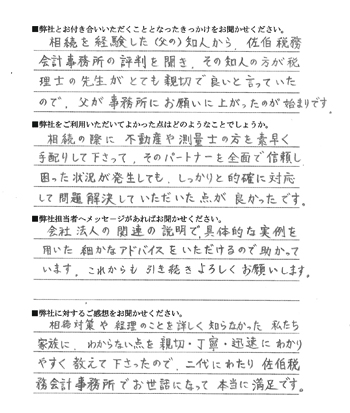 ■弊社とお付き合いいただくこととなったきっかけをお聞かせください。
相続を経験した(父の)知人から、佐伯税務
会計事務所の評判を聞き、その知人の方が税
理士の先生がとても親切で良いと言っていた
ので、父が事務所にお願いに上がったのが始まりです。
■弊社をご利用いただいてよかった点はどのようなことでしょうか。
相続の際に不動産や測量士の方を素早く
手配りして下さって、そのパートナーを全面で信頼し
困った状況が発生しても、しっかりと的確に対応
して問題解決していただいた点が良かったです。
■弊社担当者へメッセージがあればお聞かせください。
会社法人の関連の説明で、具体的な実例を
用いた細かなアドバイスをいただけるので助かって
います。これからも引き続きよろしくお願いします。
■弊社に対するご感想をお聞かせください。
相続対策や経理のことを詳しく知らなかった私たち
家族に、わからない点を親切・丁寧・迅速にわかり
やすく教えて下さったので、二代にわたり佐伯税
務会計事務所でお世話になって本当に満足です。